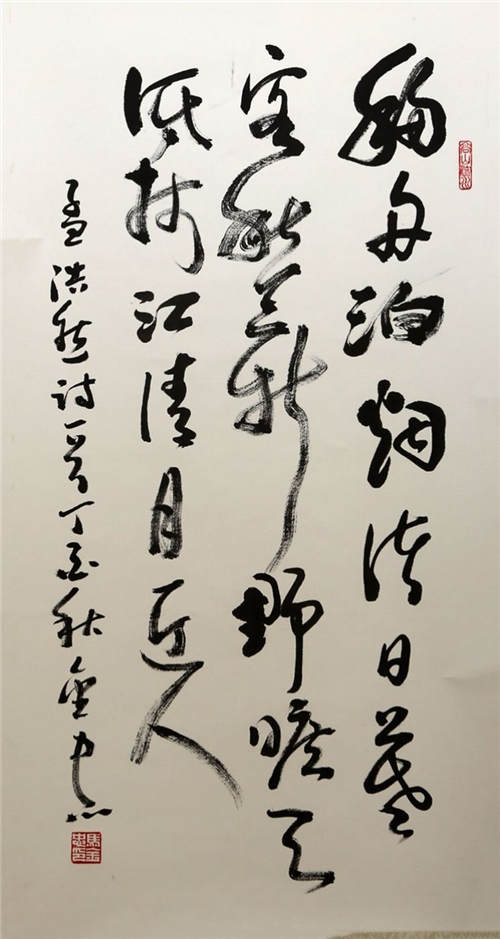 移舟泊烟渚日暮
客愁新野旷天
低树江清月近人
孟浩然诗一首丁酉秋金忠
馬金
忠印